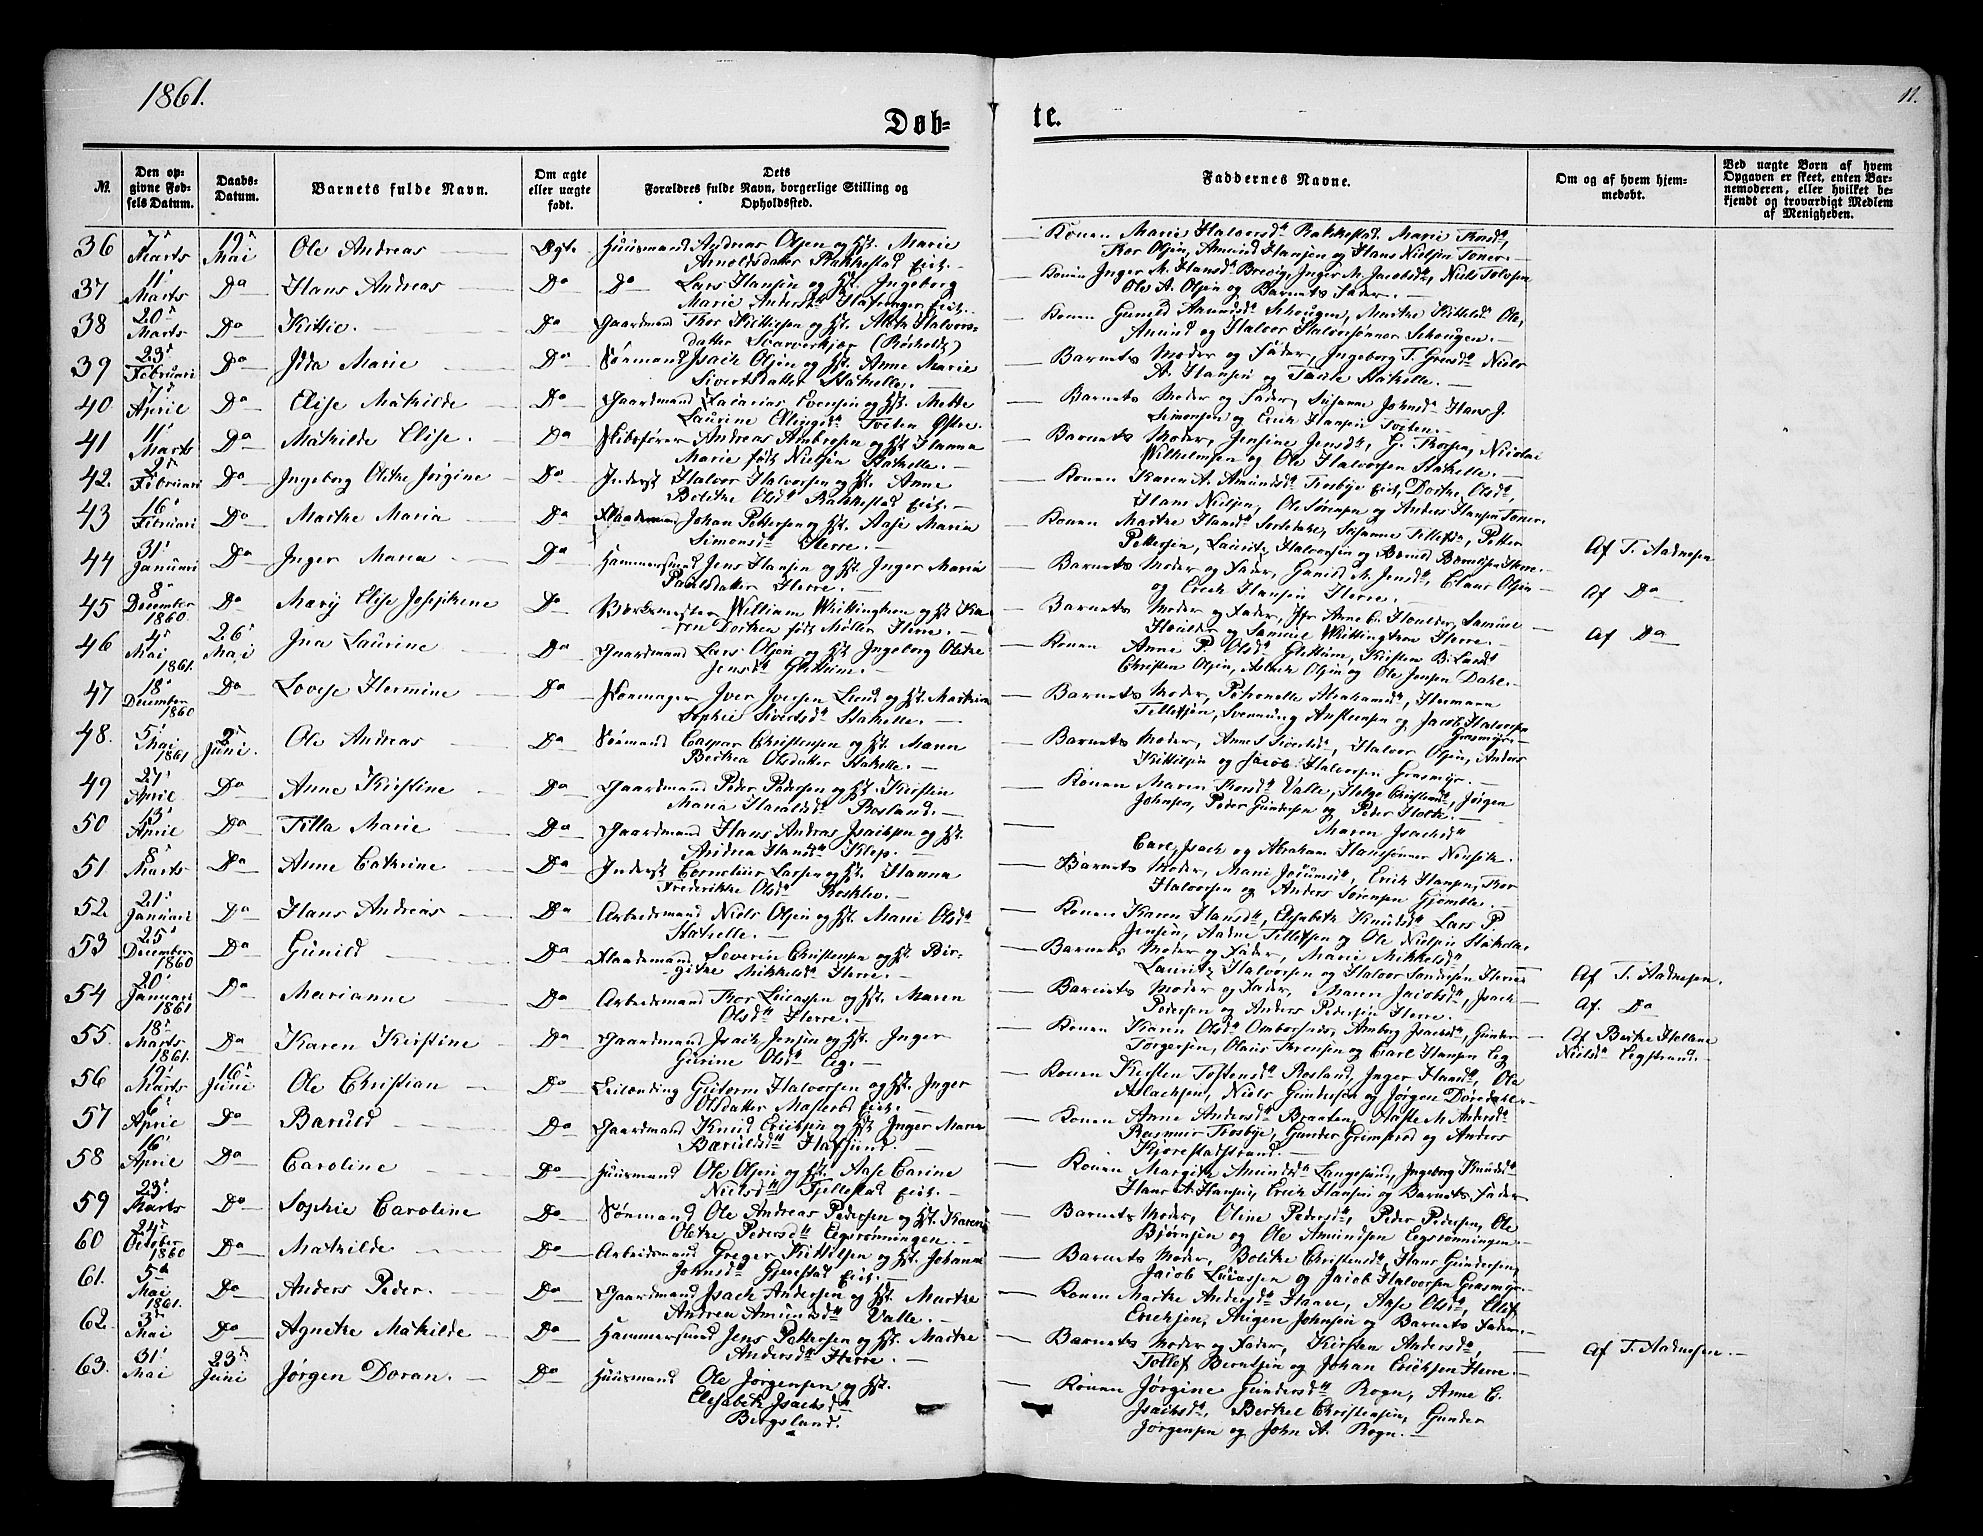 1861.
11.
Døb-
te.
№
Den op-
givne Fød-
sels Datum.
Daabs-
Datum.
Barnets fulde Navn.
Om ægte
eller uægte
født.
Dets
Forældres fulde Navn, borgerlige Stilling og
Opholdssted.
Faddernes Navne.
Om og af hvem hjem-
medøbt.
Ved uægte Born af hvem
Opgaven er skeet, enten Bar-
nemoderen, eller hvilket be-
kjendt og troværdigt Medlem
af Menigheden.
36 7 Marts 19 Mai Ole Andreas Ægte Huusmand Olsen og H. Marie
Arnoldsdatter Rakkestad Eie.
Konen Marie Halvorsd. Rakkestad, Marie
Thor Olsen, Amund Hansen og Hans Nielsen Toner.
37 11 Marts Do Hans Andreas Do Do Lars Hansen og H. Ingeborg
Marie Andersd. Eie.
Konen Inger M. Hansd. Brevig, Inger M. Jacobsd., Niels
Ole A. Olsen og Barnets Fader.
38 20 Marts Do Kittil. Do Gaardmand Thor Kittilsen og H. Halvors-
datter
Konen Gunild Schougen, Marthe Kittilsd. Ole,
Amund og Halvor Halvorsønner Schougen.
39 23 Februari Do Ida Marie Do Sømand Isach Olsen og H. Anne Marie
Sivertsdatter Stathelle.
Barnets Moder og Fader, Ingeborg T. Niels
A. Hansen og Stathelle.
40 7 April Do Elise Mathilde Do Gaardmand Zacarias Evensen og H. Mette
Laurine Ellingsd. Tveten Østre.
Barnets Moder og Fader, Susanne Johnsd. Hans J.
Simonsen og Erich Hansen Tveten.
41 11 Marts Do Mathilde Elise. Do Skibsfører Andreas Ambrosen og H. Hanna
Marie født Nielsen Stathelle.
Barnets Moder, Jensine Jensd., G. Thorsen, Nicolai
Wilhelmsen og Ole Halvorsen Stathelle.
42. 2 Februari Do Ingeborg Olethe Jørgine Do Inderst Halvor Halvorsen og H. Anne
Bolethe Olsd. Rakkestad Eie.
Konen Karen A. Amundsd. Trosbye Eie, Dorthe Olsd.,
Hans Nielsen, Ole Sørensen og Anders Hansen Toner.
43 16 Februari Do Marthe Maria Do Johan Pettersen og H. Aase Maria
Simonsd. Herre.
Konen Marthe Hansd. Susanne Tellefsd., Petter
Pettersen, Lauritz Halvorsen og Herre.
44 31 Januari Do Inger Maria Do Hammersmed Jens Hansen og H. Inger Maria
Paulsdatter Herre.
Barnets Moder og Fader, Gunild M. Jensd., Claus Olsen
og Erich Hansen Herre.
Af T. Aadnesen
45 8 December 1860 Do Mary Elise Josephine Do William Whittingham og H. Ka-
ren Dorthea født Møller Herre.
Barnets Moder og Fader, Jfr Anne E. Houlder, Samuel
Houlder og Samuel Whittingham Herre.
Af Do
46 4 Mai 1861. 26 Mai Ina Laurine Do Gaardmand Lars Olsen og H. Ingeborg Olethe
Jensd. Glittum.
Konen Anne P. Olsd. Glittum, Kirsten B. Larsd.
Christen Olsen, Aslach Olsen og Ole Jensen Dahl.
Af Do
47 18 December 1860 Do Lovise Hermine Do Iver Iversen Lund og H. Marthea
Sophie Sivertsd. Stathelle.
Barnets Moder, Petronelle Abrahamsd., Hermann
Tellefsen, Svennung Anstensen og Jacob Halvorsen
Grasmyr.
48. 5 Mai 1861 2 Juni. Ole Andreas Do Sømand Caspar Christensen og H. Maren
Berthea Olsdatter Stathelle.
Barnets Moder, Anne Sivertsd., Halvor Olsen, Anders
Kittilsen og Jacob Halvorsen Grasmyr.
49 27 April Do Anne Kirstine Do Gaardmand Peder Pedersen og H. Kirsten
Maria Haroldsd. Rosland.
Konen Maren Thorsd. Valle, Helge Christensd., Jørgen
Johnsen, Peder Gundersen og Peder
50 13 April Do Tilla Marie Do Gaardmand Hans Andreas Isachsen og H.
Andrea Hansd. Klep.
Maren Isachsd.
Carl, Isach og Abraham Hanssønner
51 8 Marts Do Anne Cathrine Do Inderst Cornelius Larsen og H. Hanna
Frederikke Olsd.
Barnets Moder, Mari Erich Hansen, Thor
Halvorsen og Anders Sørensen Gjømle.
52. 21 Januari Do Hans Andreas Do Arbeidsmand Niels Olsen og H. Mari Olsd.
Stathelle.
Konen Karen Hansd., Elisabeth Knudsd. Lars P.
Jensen, Aadne Tellefsen og Ole Nielsen Stathelle
53 25 December 1860 Do Gunild Do Severin Christensen og H. Bir-
githe Mikkelsd. Herre.
Barnets Moder og Fader, Marie Mikkelsd.,
Lauritz Halvorsen og Halvor Sondresen Herre
Af T. Aadnesen.
54 20 Januari 1861 Do Marianne Do Arbeidsmand Thor Lucassen og H. Maren
Olsd. Herre.
Barnets Moder og Fader, Maren Jacobsd., Isach
Pedersen og Anders Pedersen Herre.
Af. Do
55 18 Marts 1861. Do Karen Kirstine Do Gaardmand Isach Jensen og H. Inger
Gurine Olsd. Eeg.
Konen Karen Olsd. Omborsnes, Isachsd., Gunder
Torgersen, Olaus Thronsen og Carl Hansen Eeg
Af Berthe Helene
Nielsd. Eegstrand.
56 19 Marts 16 Juni Ole Christian Do Leilænding Gutorm Halvorsen og H. Inger
Olsdatter
Konen Kirsten Toftensd. Rosland, Inger Hansd., Ole
Aslachsen, Niels Gundersen og Jørgen Dørdahl.
57 6 April Do Baruld Do Gaardmand Knud Erichsen og H. Inger Maria
Baruldsd. Hafsund.
Konen Anne Andersd. Braaten, M. Andersd.
Rasmus Trosbye, Gunder Grimstad og Anders
Kjørestadstrand.
58 16 April Do Caroline Do Huusmand Ole Olsen og H. Aase Carine
Nielsd. Fjellestad Eie.
Konen Margith Amundsd. Langesund, Ingeborg Knudsd.
Hans A. Hansen, Erich Hansen og Barnets Fader
59 23 Marts Do Sophie Caroline Do Sømand Ole Andreas Pedersen og H. Karen
Olethe Pedersd. Eegsrønningen.
Barnets Moder, Oline Pedersd., Peder Pedersen, Ole
Bjørnsen og Ole Amundsen Eegsrønningen.
60 24 October 1860 Do Mathilde Do Arbeidsmand Greger Kittilsen og H. Johanne
Johnsd. Eie.
Barnets Moder, Bolethe Christensd., Hans Gundersen,
Jacob Lucassen og Jacob Halvorsen Grasmyr.
61. 5 Mai 1861. Do Anders Peder. Do Gaardmand Isach Andersen og H. Marthe
Andrea Amundsd. Valle.
Konen Marthe Andersd. Aase Olsd., Ellef
Erichsen, Johnsen og Barnets Fader.
62. 3 Mai Do Agnethe Mathilde Do Hammersmed Jens Pettersen og H. Marthe
Andersd. Herre.
Barnets Moder og Fader, Kirsten Andersd.,
Tollef Berntsen og Johan Erichsen Herre.
Af T. Aadnesen.
63. 31 Mai 23 Juni Jørgen Doran. Do Huusmand Ole Jørgensen og H.
Elisabeth Isachsd.
Bergsland.
Konen Jørgine Gundersd. Rogn, Anne E.
Isachsd., Berthel Christensen, Gunder
Jørgensen og John A. Rogn.